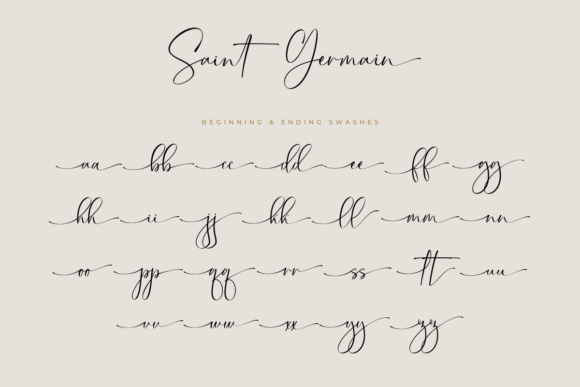 Saint Germain
BEGINNING & ENDING SWASHES
aa bb cc dd ee ff gg
hh ii jj kk ll mm nn
oo pp qq rr ss tt uu
vv ww xx yy zz